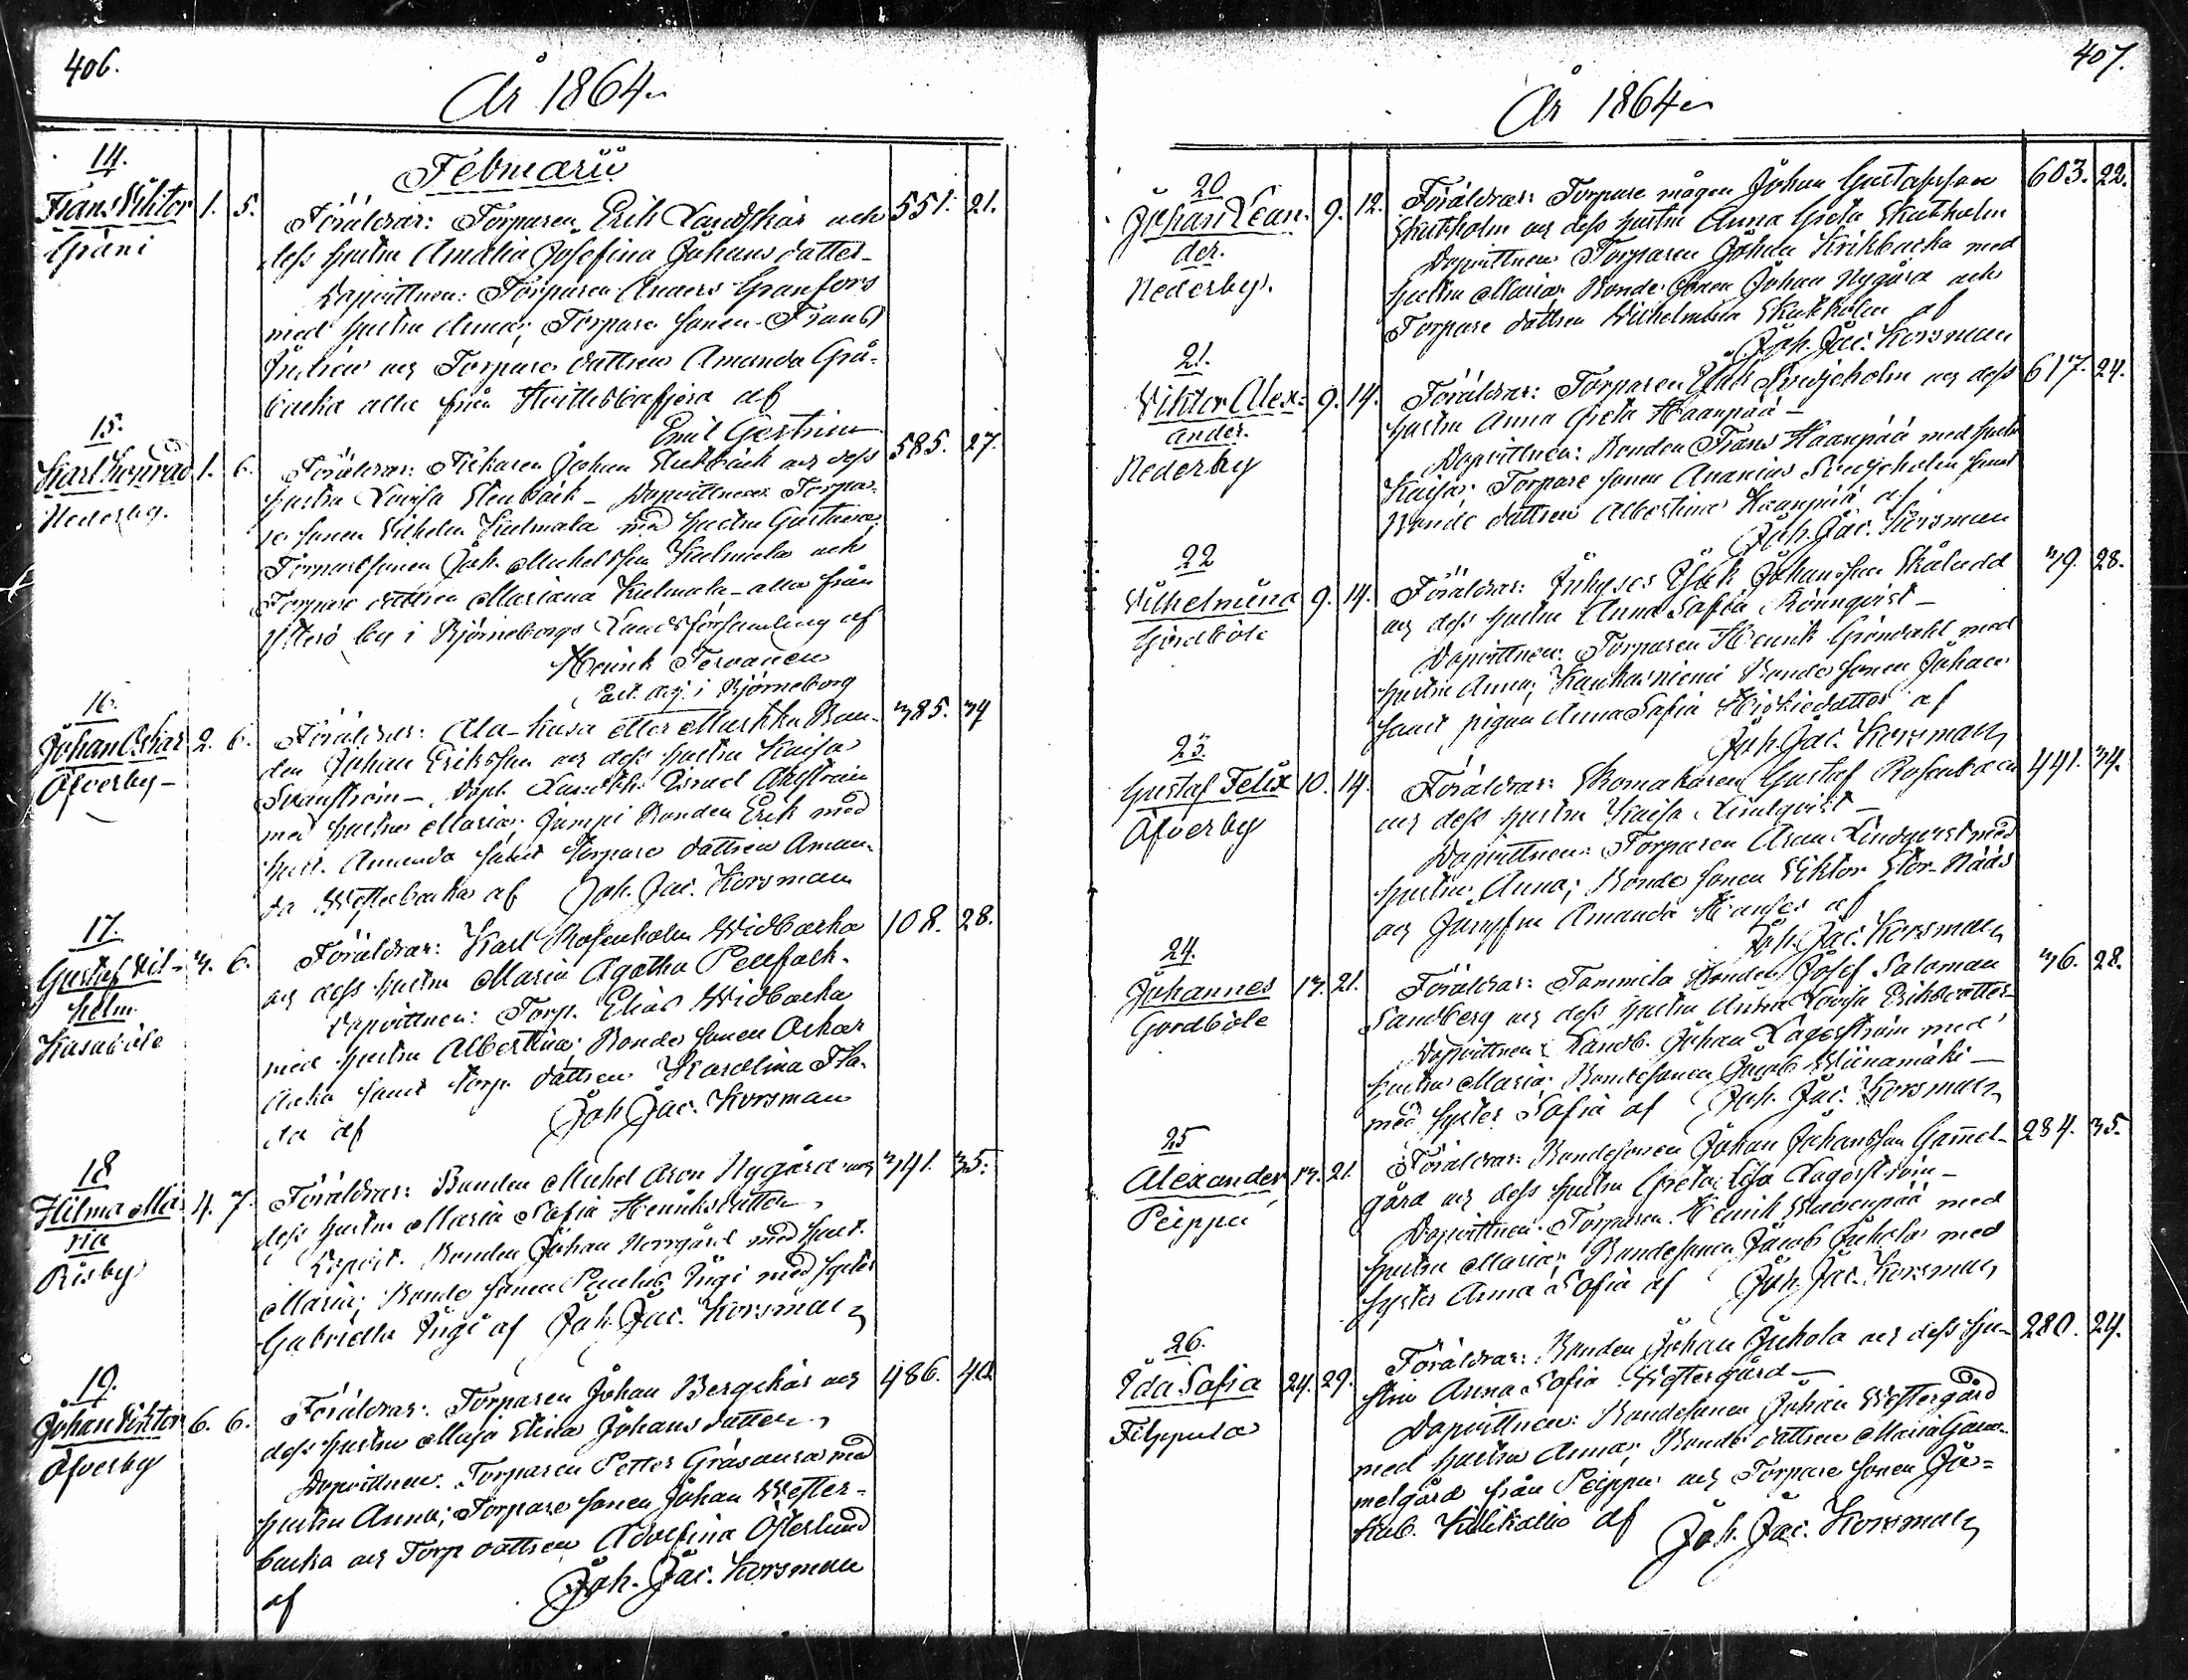 406.
År 1864
Februarii
14.
Frans Viktor 1. 5.
Gräni
Föräldrar: Torparen Erik Landskär och 551. 21.
dess hustru Amalia Josefina Johans dotter
Dopvittnen: Torparen Anders Granfors
med hustru Anna; Torpare sonen Frans
och Torpare dottren Amanda Grå-
backa alla från af
Emil Gestrin
15.
Karl Konrad 1. 6.
Nederby.
Föräldrar: Fiskaren Johan och dess 585. 27.
hustru Lovisa Stenbäck – Dopvittnen: Torpa-
re sonen Vilhelm Kulmala med hustru Gustava
Torparesonen Joh. Michelsson Kulmala och
Torpare dottren Mariana Kulmala – alla från
Ytterö by i Björneborgs Landsförsamling af
Henrik Tervanen
i Björneborg
16.
Johan Oskar 2. 6.
Öfverby –
Föräldrar: Ala-Kasa eller Markku Bon- 385. 34
den Johan Eriksson och dess hustru Kaisa
Svanström – Dopv. Israel
med hustru Maria; Jumpi Bonden Erik med
hust. Amanda samt Torpare dottren Aman-
da Westerbacka af Joh. Jac. Korsman
17.
Gustaf Vil- 3. 6.
helm
Kasaböle
Föräldrar: Karl Rosenholm Widbacka 108. 28.
och dess hustru Maria Agatha
Dopvittnen: Torp. Elias Widbacka
med hustru Albertina; Bonde sonen Oskar
samt torp. dottren Karolina
af Joh. Jac. Korsman
18
Hilma Ma- 4. 7.
ria
Risby
Föräldrar: Bonden Michel Aron Nygård och 341. 35.
dess hustru Maria Sofia Henriksdotter
Dopvit. Bonden Johan Norrgård med hust.
Maria; Bonde sonen Paulus Ingi med syster
Gabriella Ingi af Joh. Jac. Korsman
19.
Johan Viktor 6. 6.
Öfverby
Föräldrar: Torparen Johan Bergskär och 486. 40
dess hustru Maja Stina Johans dotter
Dopvittnen: Torparen Petter Gräsanra med
hustru Anna; Torpare sonen Johan Wester-
backa och Torp dottren Adolfina Österlund
af Joh. Jac. Korsman
407.
År 1864
20
Johan Lean- 9. 12.
der.
Nederby.
Föräldrar: Torpare mågen Johan Gustafsson 603. 22.
Skutholm och dess hustru Anna Greta Skutholm
Dopvittnen Torparen Johan Krikbacka med
hustru Maria; Bonde sonen Johan Nygård och
Torpare dottren Wilhelmina Skutholm af
Joh. Jac. Korsman
21.
Viktor Alex- 9. 14.
ander.
Nederby
Föräldrar: Torparen Isak Svedjeholm och dess 617. 24.
hustru Anna Greta Haanpää –
Dopvittnen: Bonden Frans Haanpää med hustru
Kaisa; Torpare sonen Ananias Svedjeholm samt
Bonde dottren Albertina Haanpää af
Joh. Jac. Korsman
22
Vilhelmina 9. 14.
Gårdböle
Föräldrar: Inhyses Isak Johansson Skåludd 39. 28.
och dess hustru Anna Sofia Rönnqvist –
Dopvittnen: Torparen Henrik Gröndahl med
hustru Anna; Kauhasniemi Bonde sonen Johan
samt pigan Anna Sofia Hiskiedotter af
Joh. Jac. Korsman
23.
Gustaf Felix 10. 14.
Öfverby
Föräldrar: Skomakaren Gustaf 441. 34.
och dess hustru Kaisa Lindqvist –
Dopvittnen: Torparen Aron Lindqvist med
hustru Anna; Bonde sonen Viktor Stor-Nääs
och Jungfru Amanda af
Joh. Jac. Korsman
24.
Johannes 13. 21.
Gårdböle
Föräldrar: Tommila Bonden Josef Salomon 36. 28.
Sandberg och dess hustru Anna Lovisa Eriksdotter
Dopvittnen: Landb. Johan Lagerström med
hustru Maria; Bondesonen Jacob Wiinamäki –
med syster Sofia af Joh. Jac. Korsman
25
Alexander 13. 21.
Peippu
Föräldrar: Bondesonen Johan Johansson Gam̄el- 284. 35.
gård och dess hustru Greta Lisa Lagerström –
Dopvittnen: Torparen Henrik med
hustru Maria; Bondesonen Jacob Juhola med
syster Anna Sofia af Joh. Jac. Korsman
26.
Ida Sofia 24. 29.
Filppula
Föräldrar: Bonden Johan Juhola och dess hu- 280. 24.
stru Anna Sofia Westergård –
Dopvittnen: Bondesonen Johan Westergård
med hustru Anna; Bonde dottren Maria Gam-
melgård från Peippu och Torpare sonen Ja-
kob. Kallikallio af Joh. Jac. Korsman